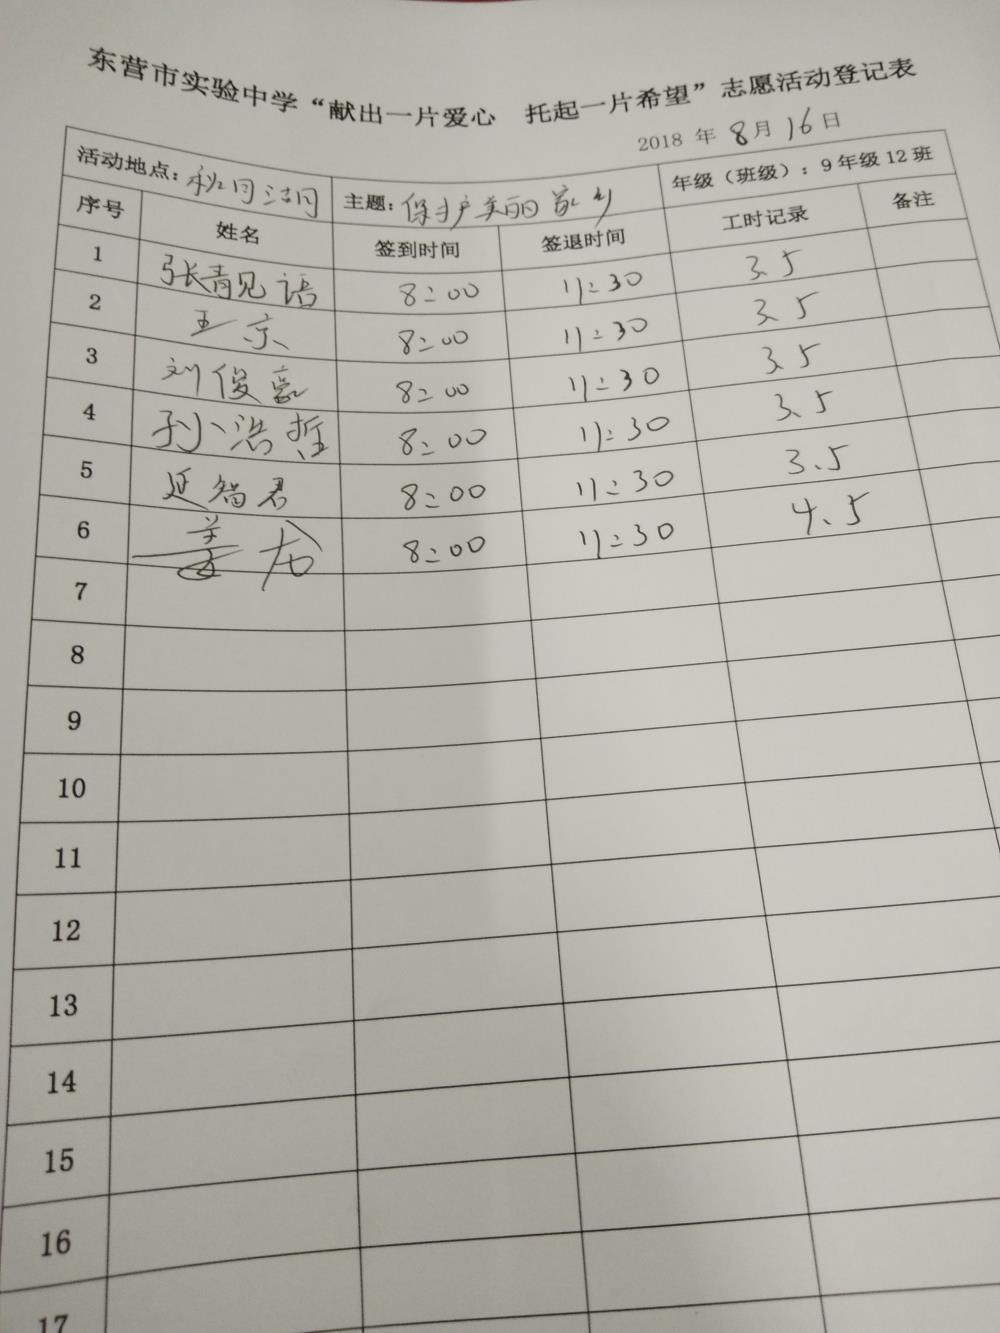 东营市实验中学“献出一片爱心 托起一片希望”志愿活动登记表
2018 年 8月 16日
活动地点：秋月湖 主题：保护美丽家乡 年级（班级）：9年级12班
序号 姓名 签到时间 签退时间 工时记录 备注
1 张青见语 8:00 11:30 3.5
2 王京 8:00 11:30 3.5
3 刘俊 8:00 11:30 3.5
4 孙浩哲 8:00 11:30 3.5
5 延智君 8:00 11:30 3.5
6 8:00 11:30 4.5
7
8
9
10
11
12
13
14
15
16
17